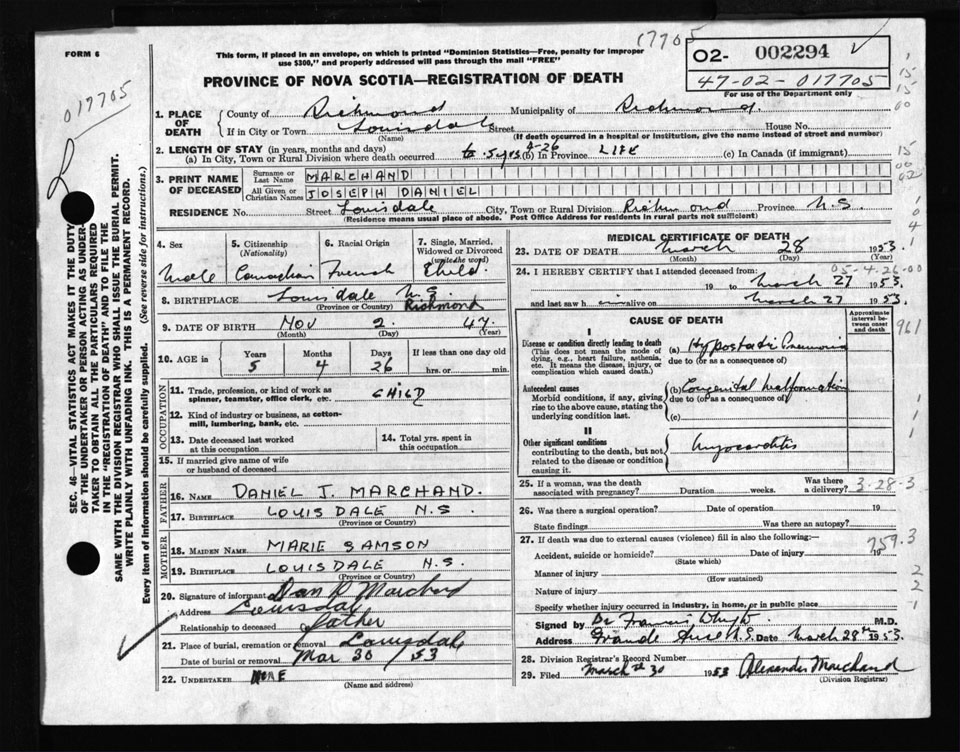 FORM 6
17705
This form, if placed in an envelope, on which is printed "Dominion Statistics—Free, penalty for improper
use $300," and properly addressed will pass through the mail "FREE"
O2- 002294
47-02-017705
For use of the Department only
PROVINCE OF NOVA SCOTIA—REGISTRATION OF DEATH
017705
SEC. 46—VITAL STATISTICS ACT MAKES IT THE DUTY
OF THE UNDERTAKER OR PERSON ACTING AS UNDER-
TAKER TO OBTAIN ALL THE PARTICULARS REQUIRED
IN THE "REGISTRATION OF DEATH" AND TO FILE THE
SAME WITH THE DIVISION REGISTRAR WHO SHALL ISSUE THE BURIAL PERMIT.
WRITE PLAINLY WITH UNFADING INK. THIS IS A PERMANENT RECORD.
Every item of information should be carefully supplied. (See reverse side for instructions.)
1. PLACE OF DEATH
County of Richmond Municipality of Richmond
If in City or Town Louisdale Street House No.
(Name) (If death occurred in a hospital or institution, give the name instead of street and number)
2. LENGTH OF STAY (in years, months and days)
(a) In City, Town or Rural Division where death occurred 5 yrs 4-26 (b) In Province LIFE (c) In Canada (if immigrant)
3. PRINT NAME OF DECEASED
Surname or Last Name MARCHAND
All Given or Christian Names JOSEPH DANIEL
RESIDENCE No. Street Louisdale City, Town or Rural Division Richmond Province N.S.
(Residence means usual place of abode. Post Office Address for residents in rural parts not sufficient)
4. Sex
Male
5. Citizenship (Nationality)
Canadian
6. Racial Origin
French
7. Single, Married, Widowed or Divorced (write the word)
Child
8. BIRTHPLACE Louisdale N.S.
(Province or Country) Richmond
9. DATE OF BIRTH Nov 2 47
(Month) (Day) (Year)
10. AGE in Years Months Days If less than one day old
5 4 26 hrs. or min.
OCCUPATION
11. Trade, profession, or kind of work as
spinner, teamster, office clerk, etc. CHILD
12. Kind of industry or business, as cotton-
mill, lumbering, bank, etc.
13. Date deceased last worked
at this occupation
14. Total yrs. spent in
this occupation
15. If married give name of wife
or husband of deceased
FATHER
16. NAME DANIEL J. MARCHAND.
17. BIRTHPLACE LOUISDALE N.S.
(Province or Country)
MOTHER
18. MAIDEN NAME MARIE SAMSON
19. BIRTHPLACE LOUISDALE N.S.
(Province or Country)
20. Signature of informant Dan R Marchand
Address Louisdale
Relationship to deceased father
21. Place of burial, cremation or removal Louisdale
Date of burial or removal Mar 30 /53
22. UNDERTAKER NONE
(Name and address)
MEDICAL CERTIFICATE OF DEATH
23. DATE OF DEATH March 28 1953
(Month) (Day) (Year)
24. I HEREBY CERTIFY that I attended deceased from:
05-4-26-00
19 to March 27 1953.
and last saw h im alive on March 27 1953.
CAUSE OF DEATH
Approximate interval between onset and death
961
I
Disease or condition directly leading to death
(This does not mean the mode of
dying, e.g., heart failure, asthenia,
etc. It means the disease, injury, or
complication which caused death.)
(a) Hypostatic Pneumonia
due to (or as a consequence of)
Antecedent causes
Morbid conditions, if any, giving
rise to the above cause, stating the
underlying condition last.
(b) Congenital Malformation
due to (or as a consequence of)
(c)
II
Other significant conditions
contributing to the death, but not
related to the disease or condition
causing it.
Myocarditis
25. If a woman, was the death
associated with pregnancy? Duration weeks. Was there
a delivery? 3-28-3
26. Was there a surgical operation? Date of operation 19
State findings Was there an autopsy?
27. If death was due to external causes (violence) fill in also the following:—
759.3
Accident, suicide or homicide? Date of injury 19
(State which)
Manner of injury
(How sustained)
Nature of injury
Specify whether injury occurred in industry, in home, or in public place
Signed by Dr Francis M.D.
Address Grande Anse N.S. Date March 28th 1953.
28. Division Registrar's Record Number
29. Filed March 30 1953 Alexander Marchand
(Division Registrar)